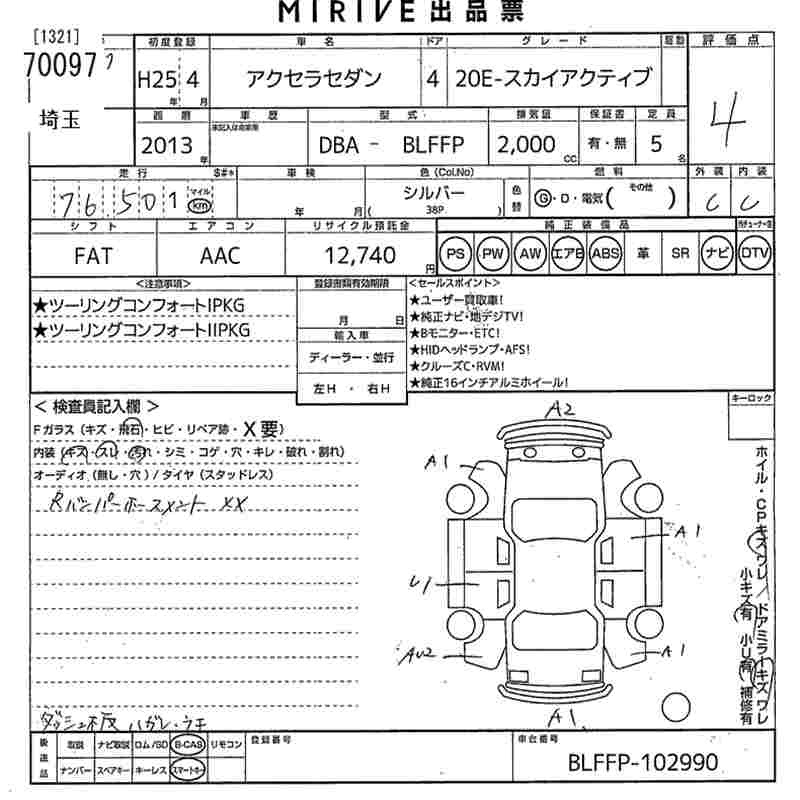 MIRIVE出品票
[1321]
70097
埼玉
初度登録 車名 ドア グレード 駆動 評価点
H25 4 アクセラセダン 4 20E-スカイアクティブ 4
年 月
車歴 型式 排気量 保証書 定員
2013 DBA - BLFFP 2,000 有・無 5
年 CC 名
走行 S#* 車検 色(Col.No) 燃料 外装 内装
76,501 マイル km 年 月 シルバー 色替 G・D・電気( その他 ) C C
( 38P )
シフト エアコン リサイクル預託金 純正装備品
FAT AAC 12,740 円 PS PW AW エアB ABS 革 SR ナビ DTV
<注意事項> 登録書類有効期限 <セールスポイント>
★ツーリングコンフォートIPKG
★ツーリングコンフォートIIPKG
月 日
輸入車
ディーラー・並行
左H ・ 右H
★ユーザー買取車!
★純正ナビ・地デジTV!
★Bモニター・ETC!
★HIDヘッドランプ・AFS!
★クルーズC・RVM!
★純正16インチアルミホイール!
キーロック
< 検査員記入欄 >
Fガラス(キズ・飛石・ヒビ・リペア跡・X要)
内装(キズ・スレ・汚れ・シミ・コゲ・穴・キレ・破れ・割れ)
オーディオ(無し・穴)/タイヤ(スタッドレス)
Rバンパーホースメント XX
A2
A1
A1
U1
AU2
A1
A1
ホイル・CPキズワレ/ドアミラーキズワレ
小キズ有 小U有 補修有
ダッシュ板 ハガレ・ウキ
後送品 取説 ナビ取説 ロム/SD B-CAS リモコン 登録番号 車台番号
ナンバー スペアキー キーレス スマートキー BLFFP-102990